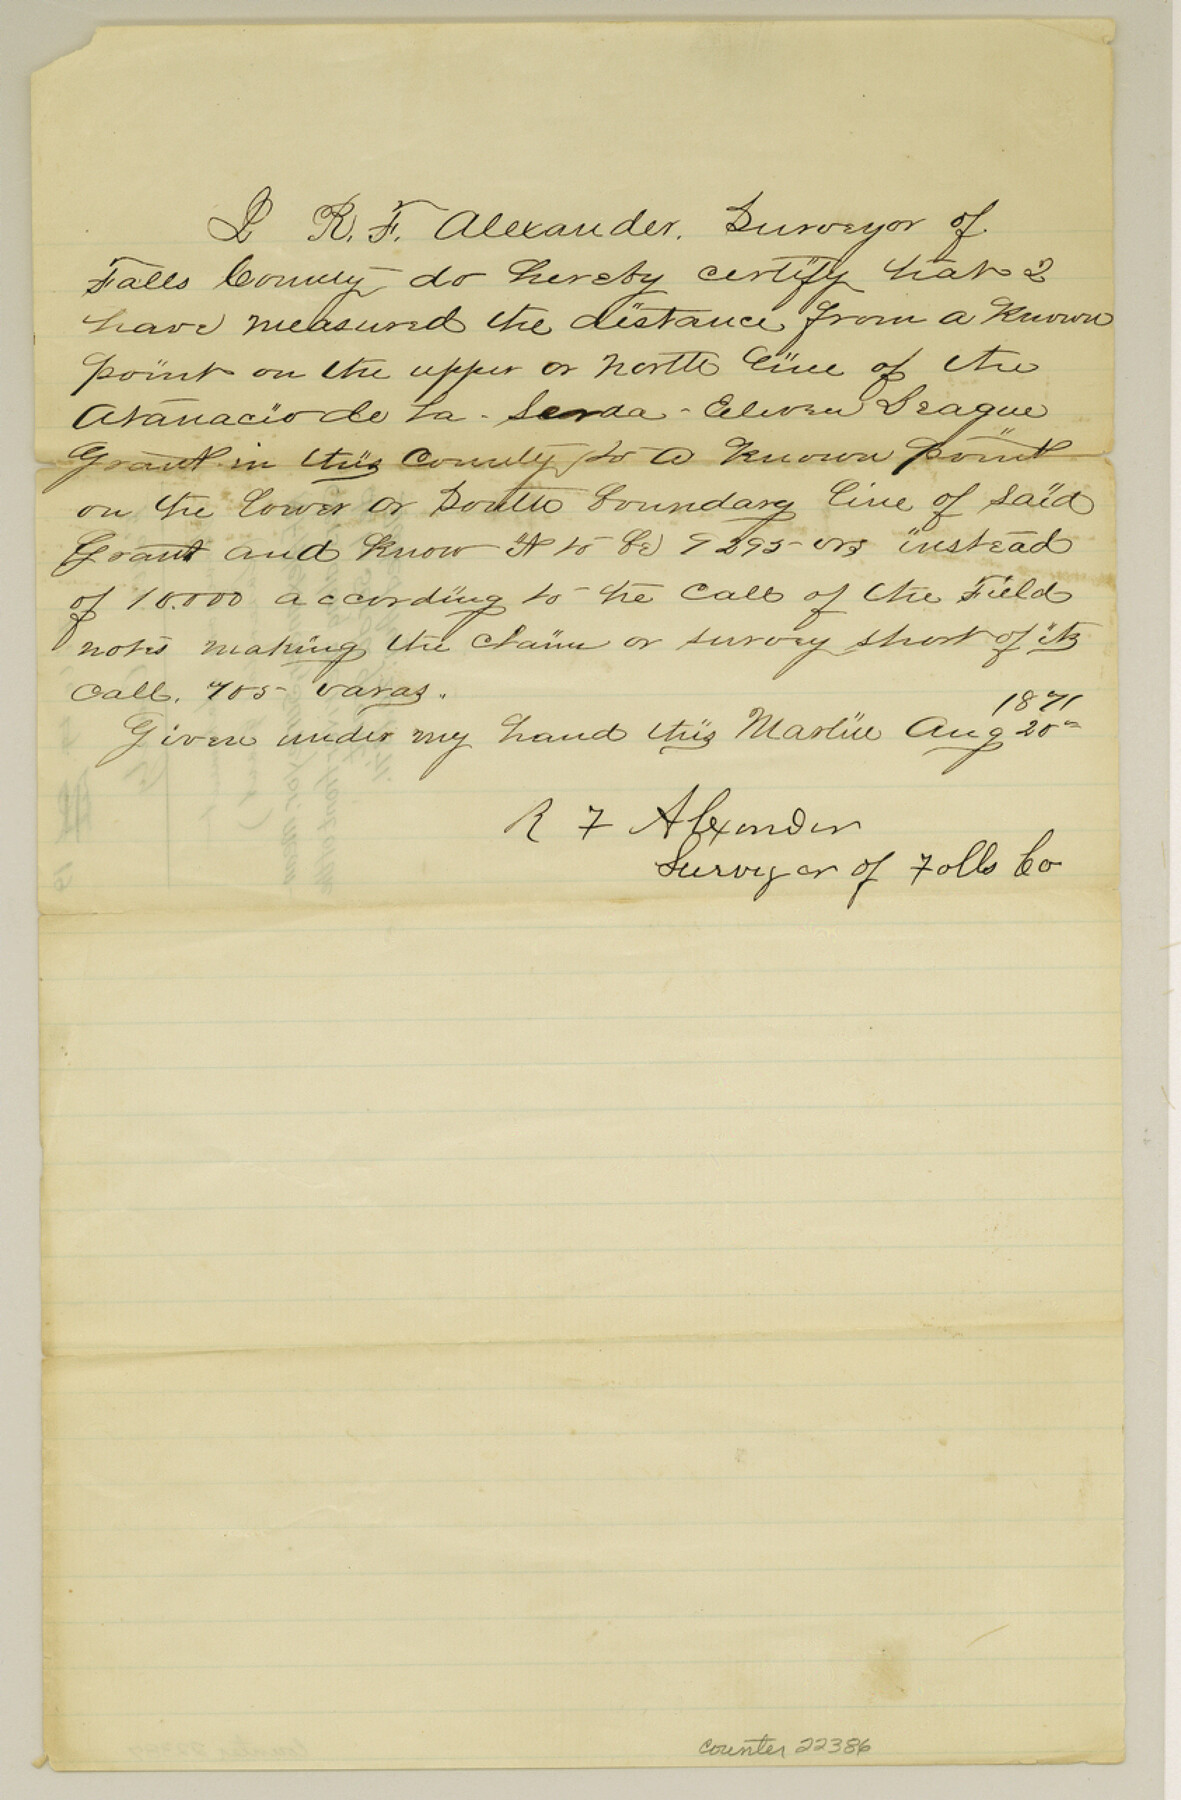 I R. F. Alexander. Surveyor of
Falls County do hereby certify that I
have measured the distance from a Known
point on the upper or North line of the
Atanacio de la - Serda - Eleven League
Grant in this County to a Known point
on the lower or South boundary line of Said
Grant and Know it to be 9295 vrs instead
of 10.000 according to the Call of the Field
notes making the claim or survey short of its
Call. 705 varas.
Given under my hand this Marlin Aug 20th 1871
R F Alexander
Surveyor of Falls Co
counter 22386